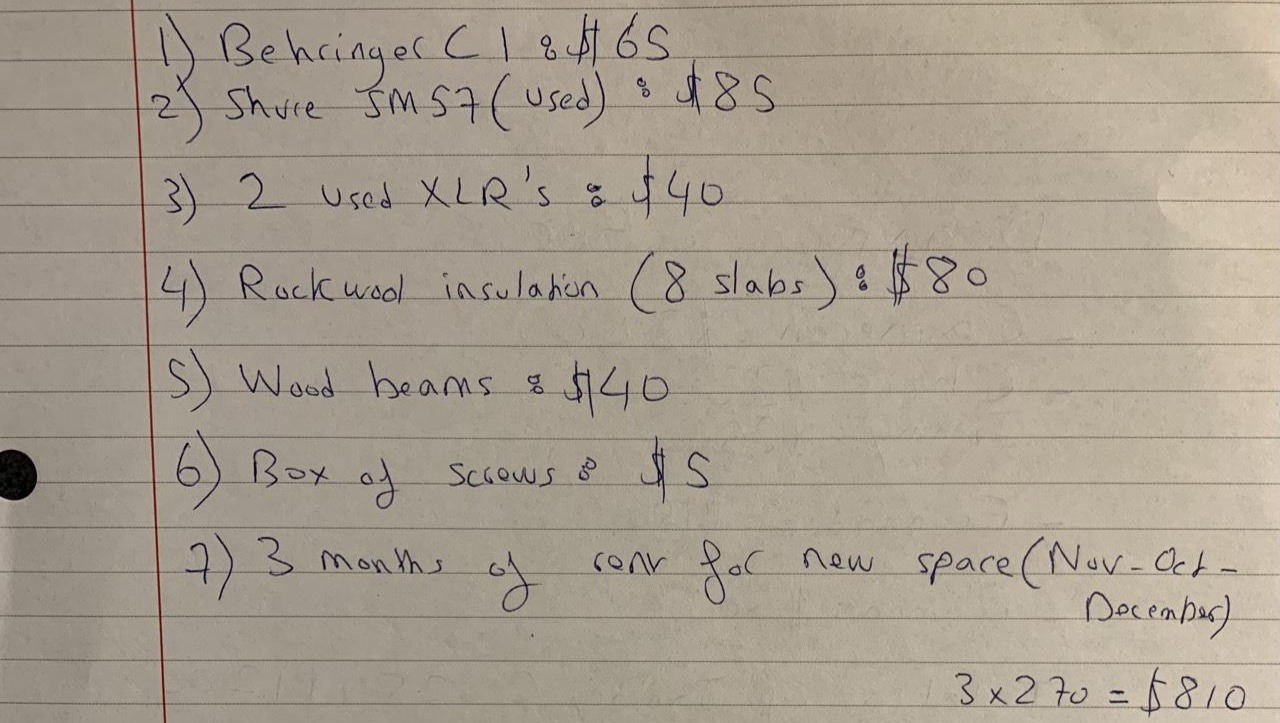 1) Behringer C1 : $65
2) Shure SM57 (used) : $85
3) 2 used XLR's : $40
4) Rockwool insulation (8 slabs) : $80
5) Wood beams : $40
6) Box of screws : $5
7) 3 months of rent for new space (Nov-Oct-
December)
3 x 270 = $810